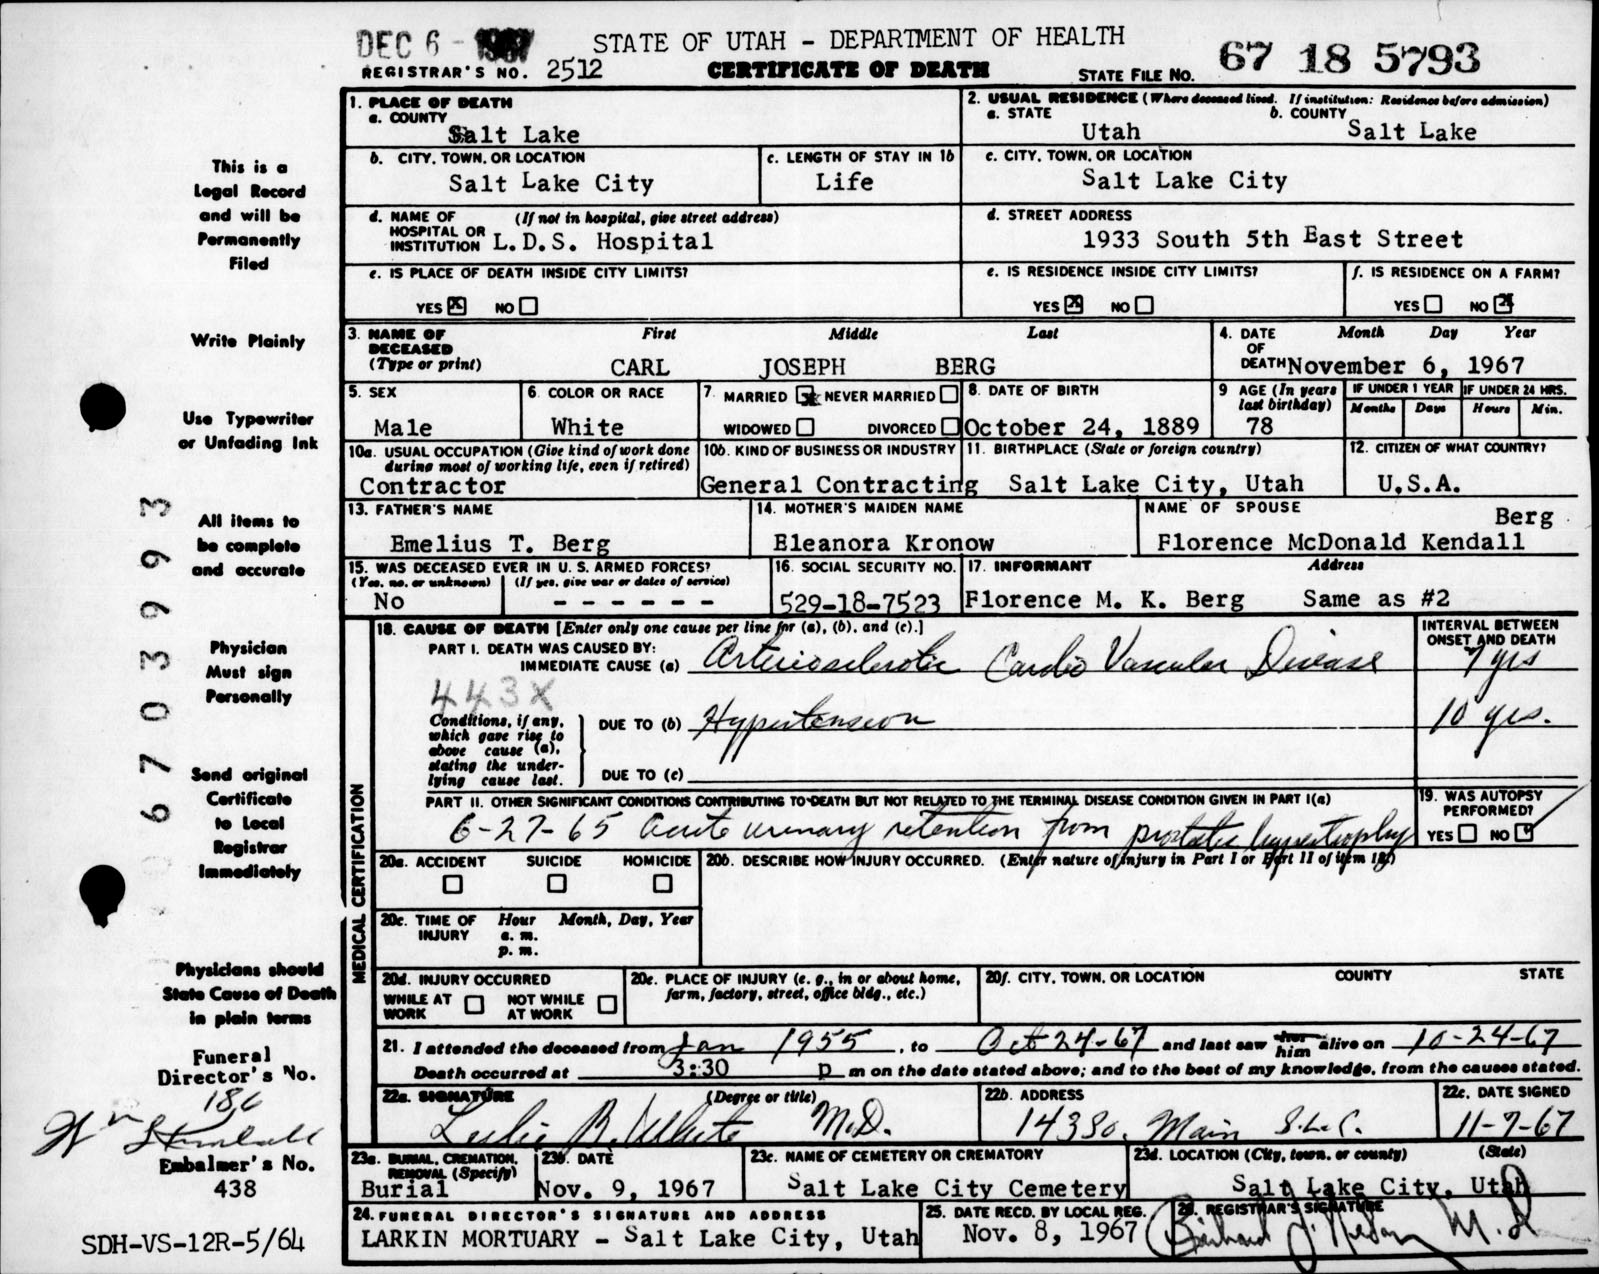 DEC 6 - 1967
STATE OF UTAH - DEPARTMENT OF HEALTH
REGISTRAR'S NO. 2512
CERTIFICATE OF DEATH
STATE FILE NO. 67 18 5793
1. PLACE OF DEATH
a. COUNTY
Salt Lake
2. USUAL RESIDENCE (Where deceased lived. If institution: Residence before admission)
a. STATE b. COUNTY
Utah Salt Lake
b. CITY, TOWN, OR LOCATION
Salt Lake City
c. LENGTH OF STAY IN 1b
Life
c. CITY, TOWN, OR LOCATION
Salt Lake City
d. NAME OF HOSPITAL OR INSTITUTION (If not in hospital, give street address)
L.D.S. Hospital
d. STREET ADDRESS
1933 South 5th East Street
e. IS PLACE OF DEATH INSIDE CITY LIMITS?
YES X NO
e. IS RESIDENCE INSIDE CITY LIMITS?
YES X NO
f. IS RESIDENCE ON A FARM?
YES NO X
3. NAME OF DECEASED (Type or print) First Middle Last
CARL JOSEPH BERG
4. DATE OF DEATH Month Day Year
November 6, 1967
5. SEX
Male
6. COLOR OR RACE
White
7. MARRIED X NEVER MARRIED
WIDOWED DIVORCED
8. DATE OF BIRTH
October 24, 1889
9. AGE (In years last birthday)
78
IF UNDER 1 YEAR IF UNDER 24 HRS.
Months Days Hours Min.
10a. USUAL OCCUPATION (Give kind of work done during most of working life, even if retired)
Contractor
10b. KIND OF BUSINESS OR INDUSTRY
General Contracting
11. BIRTHPLACE (State or foreign country)
Salt Lake City, Utah
12. CITIZEN OF WHAT COUNTRY?
U.S.A.
13. FATHER'S NAME
Emelius T. Berg
14. MOTHER'S MAIDEN NAME
Eleanora Kronow
NAME OF SPOUSE
Berg
Florence McDonald Kendall
15. WAS DECEASED EVER IN U. S. ARMED FORCES?
(Yes, no, or unknown) (If yes, give war or dates of service)
No - - - - - - -
16. SOCIAL SECURITY NO.
529-18-7523
17. INFORMANT Address
Florence M. K. Berg Same as #2
MEDICAL CERTIFICATION
18. CAUSE OF DEATH [Enter only one cause per line for (a), (b), and (c).]
INTERVAL BETWEEN ONSET AND DEATH
PART I. DEATH WAS CAUSED BY:
IMMEDIATE CAUSE (a) Arteriosclerotic Cardio Vascular Disease 7 yrs
443X
Conditions, if any, which gave rise to above cause (a), stating the underlying cause last.
DUE TO (b) Hypertension 10 yrs.
DUE TO (c)
PART II. OTHER SIGNIFICANT CONDITIONS CONTRIBUTING TO DEATH BUT NOT RELATED TO THE TERMINAL DISEASE CONDITION GIVEN IN PART I(a)
6-27-65 acute urinary retention from prostatic hypertrophy
19. WAS AUTOPSY PERFORMED?
YES NO ✓
20a. ACCIDENT SUICIDE HOMICIDE
20b. DESCRIBE HOW INJURY OCCURRED. (Enter nature of injury in Part I or Part II of item 18.)
20c. TIME OF INJURY Hour Month, Day, Year
a. m.
p. m.
20d. INJURY OCCURRED
WHILE AT WORK NOT WHILE AT WORK
20e. PLACE OF INJURY (e. g., in or about home, farm, factory, street, office bldg., etc.)
20f. CITY, TOWN, OR LOCATION COUNTY STATE
21. I attended the deceased from Jan 1955, to Oct 24-67 and last saw her him alive on 10-24-67
Death occurred at 3:30 p m on the date stated above; and to the best of my knowledge, from the causes stated.
22a. SIGNATURE (Degree or title)
Leslie B. White M.D.
22b. ADDRESS
143 So. Main S.L.C.
22c. DATE SIGNED
11-7-67
23a. BURIAL, CREMATION, REMOVAL (Specify)
Burial
23b. DATE
Nov. 9, 1967
23c. NAME OF CEMETERY OR CREMATORY
Salt Lake City Cemetery
23d. LOCATION (City, town, or county) (State)
Salt Lake City, Utah
24. FUNERAL DIRECTOR'S SIGNATURE AND ADDRESS
LARKIN MORTUARY - Salt Lake City, Utah
25. DATE RECD. BY LOCAL REG.
Nov. 8, 1967
26. REGISTRAR'S SIGNATURE
M.D
This is a
Legal Record
and will be
Permanently
Filed
Write Plainly
Use Typewriter
or Unfading Ink
All items to
be complete
and accurate
Physician
Must sign
Personally
Send original
Certificate
to Local
Registrar
Immediately
Physicians should
State Cause of Death
in plain terms
Funeral
Director's No.
186
Embalmer's No.
438
SDH-VS-12R-5/64
67039393